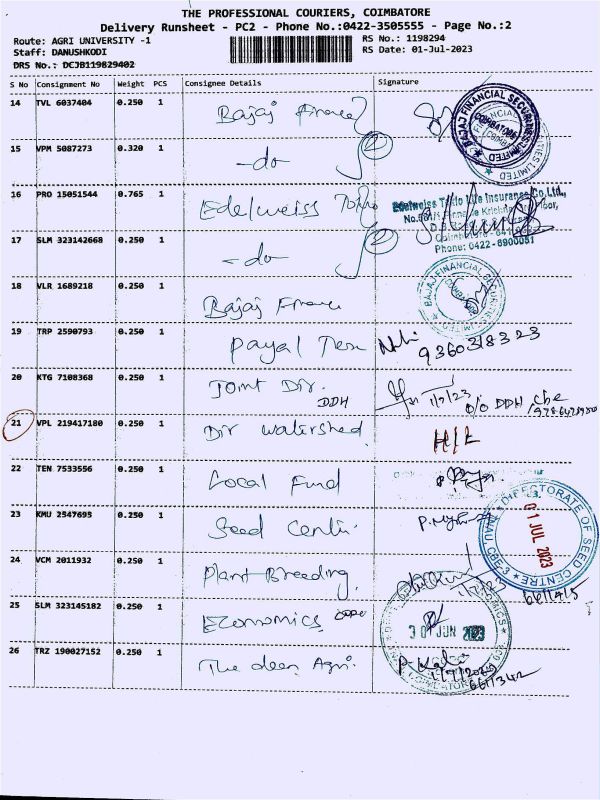 THE PROFESSIONAL COURIERS, COIMBATORE
Delivery Runsheet - PC2 - Phone No.:0422-3505555 - Page No.:2
Route: AGRI UNIVERSITY -1 RS No.: 1198294
Staff: DANUSHKODI RS Date: 01-Jul-2023
DRS No.: DCJB119829402
S No Consignment No Weight PCS Consignee Details Signature
14 TVL 6037404 0.250 1 Bajaj Finance
BAJAJ FINANCIAL SECURITIES LIMITED
COIMBATORE
15 VPM 5087273 0.320 1 -do-
16 PRO 15051544 0.765 1 Edelweiss Tokio
Edelweiss Tokio Life Insurance Co. Ltd.,
Phone: 0422-
17 SLM 323142668 0.250 1 -do-
18 VLR 1689218 0.250 1 Bajaj Finance
BAJAJ FINANCIAL SECURITIES LIMITED
19 TRP 2590793 0.250 1 Payal
9360318323
20 KTG 7108368 0.250 1 Joint Dir.
DDH
1/7/23 O/O DDH, cbe
21 VPL 219417180 0.250 1 Dir watershed
22 TEN 7533556 0.250 1 Local Fund
23 KMU 2547695 0.250 1 Seed Centre
DIRECTORATE OF SEED CENTRE
TNAU, CBE-3
01 JUL 2023
24 VCM 2011932 0.250 1 Plant Breeding
25 SLM 323145182 0.250 1 Economics
30 JUN 2023
26 TRZ 190027152 0.250 1 The dean Agri.